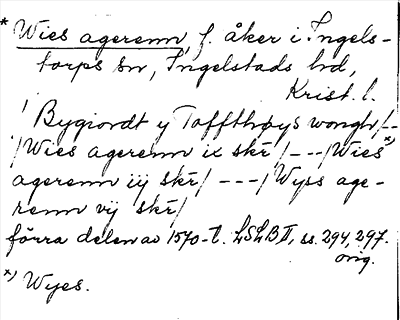 * Wies agerenn, f. åker i Ingels-
torps sn, Ingelstads hd,
Krist. l.
/ Bygiordt y Toffthøys wongh/--
/Wies agerenn ix skr̄/---/Wies x)
agerenn iij skr̄/---/Wyss age-
renn vij skr̄/
förra delen av 1570-t. LSLB II, ss. 294, 297.
orig.
x) Wyes.